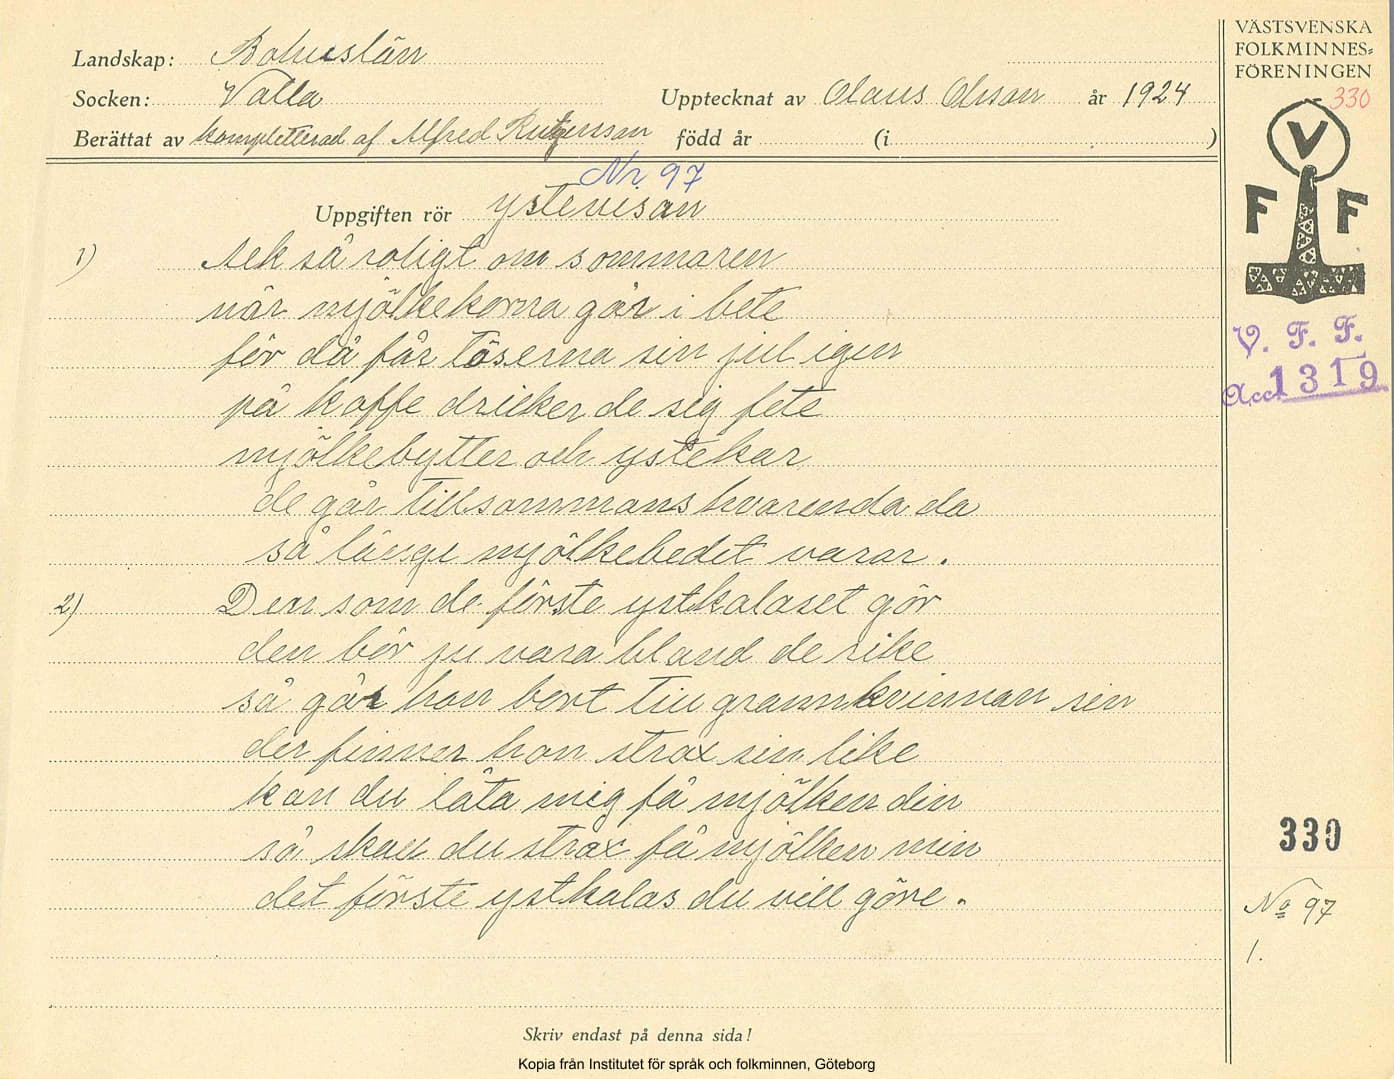 Landskap: Bohuslän
Socken: Valla
Upptecknat av Olaus Olsson år 1924
Berättat av kompletterad af Alfred Rutgersson född år (i )
Nr 97
Uppgiften rör ystevisan
1) Aek så roligt om sommaren
när mjölkekorna går i bete
för då får töserna sin jul igen
på kaffe dricker de sig fete
mjölkebytter och ystekar
de går tillsammans hvarenda da
så länge mjölkebedet varar.
2) Den som de förste ystkalaset gör
den bör ju vara bland de rike
så går hon bort till grannkvinnan sin
der finner hon strax sin like
kan du låta mig få mjölken din
så skall du strax få mjölken min
det förste ystkalas du vill göre.
Skriv endast på denna sida!
Kopia från Institutet för språk och folkminnen, Göteborg
VÄSTSVENSKA
FOLKMINNES=
FÖRENINGEN
330
V
F F
V. F. F.
Acc. 1319
330
No 97
1.